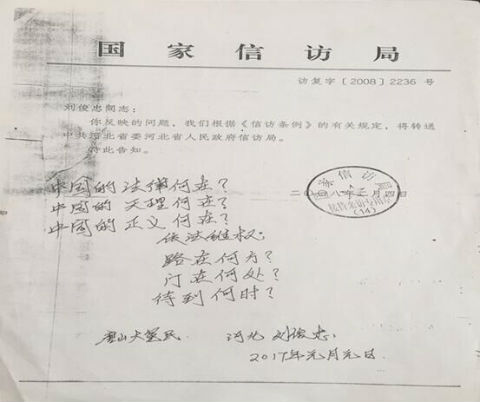 国家信访局
访复字〔2008〕2236 号
刘俊忠同志:
你反映的问题，我们根据《信访条例》的有关规定，将转送
中共河北省委河北省人民政府信访局。
特此告知。
国家信访局
(14)
中国的法律何在?
中国的天理何在?
中国的正义何在?
依法维权:
路在何方?
门在何处?
待到何时?
河北 刘俊忠.
2017年元月元日.